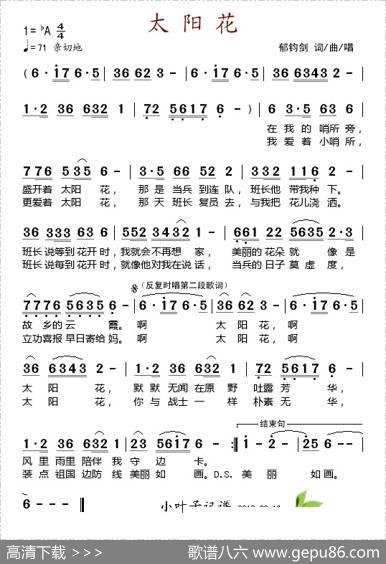 太 阳 花
1=♭A 4/4
♩=71 亲切地
郁钧剑 词/曲/唱
(6·i76·5 | 3662 3 - | 6·i76·5 | 3663432 |
1·2 366321 | 72 56176·) | 6·i7 6·5 | 3662 3 - |
在 我 的 哨所 旁,
我 爱 着 小哨所,
776 535 6 - | 3·5 66 52 | 332 116 2 |
盛开着 太阳 花, 那 是 当兵 到连 队, 班长他 带我种 下。
更爱着 太阳 花, 那 天 班长 复员 去, 与我把 花儿浇 洒。
36 333 63 | 3·335 6 - | 661 22 5635 2·3 |
班长 说等到 花开 时, 我就会不再想 家, 美丽的 花朵 就 像 是
班长 说等到 花开 时, 就像他对我在说 话, 当兵的 日子 莫 虚 度,
(反复时唱第二段歌词)
7776 5635 6 - | 6·i7 6·5 | 3662 3 - |
故 乡的 云 霞。 啊 太 阳 花, 啊
立功喜报 早日寄给 妈。 啊 太 阳 花, 啊
36 63432 | 1·2 366321 | 72 5617 6 - |
太 阳 花, 默 默 无闻 在原 野 吐露 芳 华,
太 阳 花, 你 与 战士 一 样 朴素 无 华,
结束句
1·2 366321 | 23 5617 6 - :‖ 1·2 - | 25 6 - - |
风 里 雨里 陪伴 我 守 边 卡。
装 点 祖国 边防 线 美丽 如 画。D.S. 美 丽 如画。
6 - - - ‖
小叶子记谱
高清下载 >>>
歌谱八六 www.gepu86.com